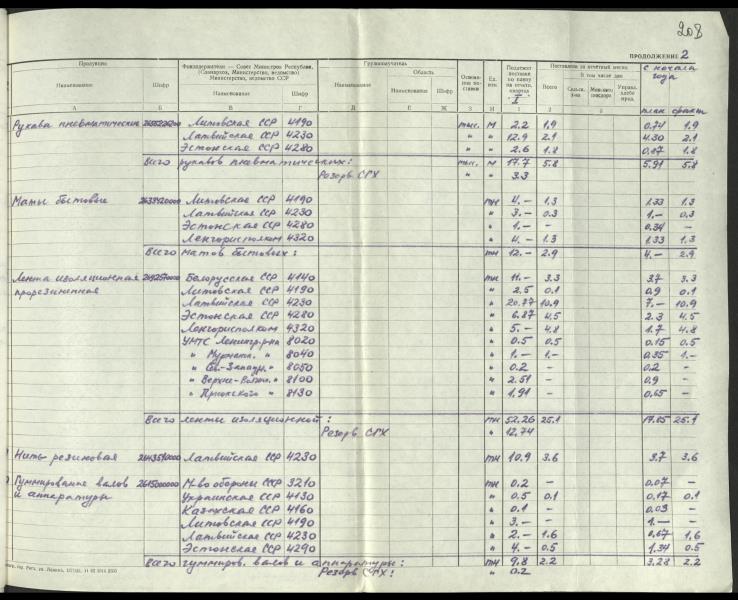 208
ПРОДОЛЖЕНИЕ 2
Продукция
Фондодержатели — Совет Министров Республики, (Совнархоз, Министерство, ведомство) Министерство, ведомство СССР
Грузополучатель
Поставлено за отчетный месяц
с начала года
Наименование Шифр Наименование Шифр Наименование Область Ед. изм. Всего В том числе для
Наименование Шифр
план факт
А Б В Г Д Е Ж З И 1 2 3 4 5
Рукава пневматические Литовская ССР 4190 тыс. м 2.2 1,9 0.74 1.9
Латвийская ССР 4230 " " 12.9 2.1 4.30 2.1
Эстонская ССР 4280 " " 2.6 1.8 0.87 1.8
Всего рукавов пневматических: тыс. м 17.7 5.8 5.91 5.8
Резерв СГХ " " 3.3
Маты бытовые Литовская ССР 4190 тн 4.- 1.3 1.33 1.3
Латвийская ССР 4230 " 3.- 0.3 1.- 0.3
Эстонская ССР 4280 " 1.- - 0.34 -
Ленгорисполком 4320 " 4.- 1.3 1.33 1.3
Всего матов бытовых: тн 12.- 2.9 4.- 2.9
Лента изоляционная Белорусская ССР 4140 тн 11.- 3.3 3.7 3.3
прорезиненная Литовская ССР 4190 " 2.5 0.1 0.9 0.1
Латвийская ССР 4230 " 20.77 10.9 7.- 10.9
Эстонская ССР 4280 " 6.87 4.5 2.3 4.5
Ленгорисполком 4320 " 5.- 4.8 1.7 4.8
УМТС Ленингр. р-на 8020 " 0.5 0.5 0.15 0.5
" Мурманск. " 8040 " 1.- 1.- 0.35 1.-
" Сев-Западн. " 8050 " 0.2 - 0.2 -
" Верхне-Волж. " 8100 " 2.51 - 0.9 -
" Приокского " 8130 " 1,91 - 0.65 -
Всего ленты изоляционной: тн 52.26 25.1 17.85 25.1
Резерв СГХ " 12.74
Нить резиновая Латвийская ССР 4230 тн 10.9 3.6 3.7 3.6
Гуммирование валов 2615000000 М-во обороны СССР 3210 тн 0.2 - 0.07 -
и аппаратуры Украинская ССР 4130 " 0.5 0.1 0.17 0.1
Казахская ССР 4160 " 0.1 - 0.03 -
Литовская ССР 4190 " 3.- - 1.- -
Латвийская ССР 4230 " 2.- 1.6 0.67 1,6
Эстонская ССР 4290 " 4.- 0.5 1.34 0.5
Всего гуммиров. валов и аппаратуры: тн 9.8 2.2 3.28 2.2
Резерв СГХ: " 0.2